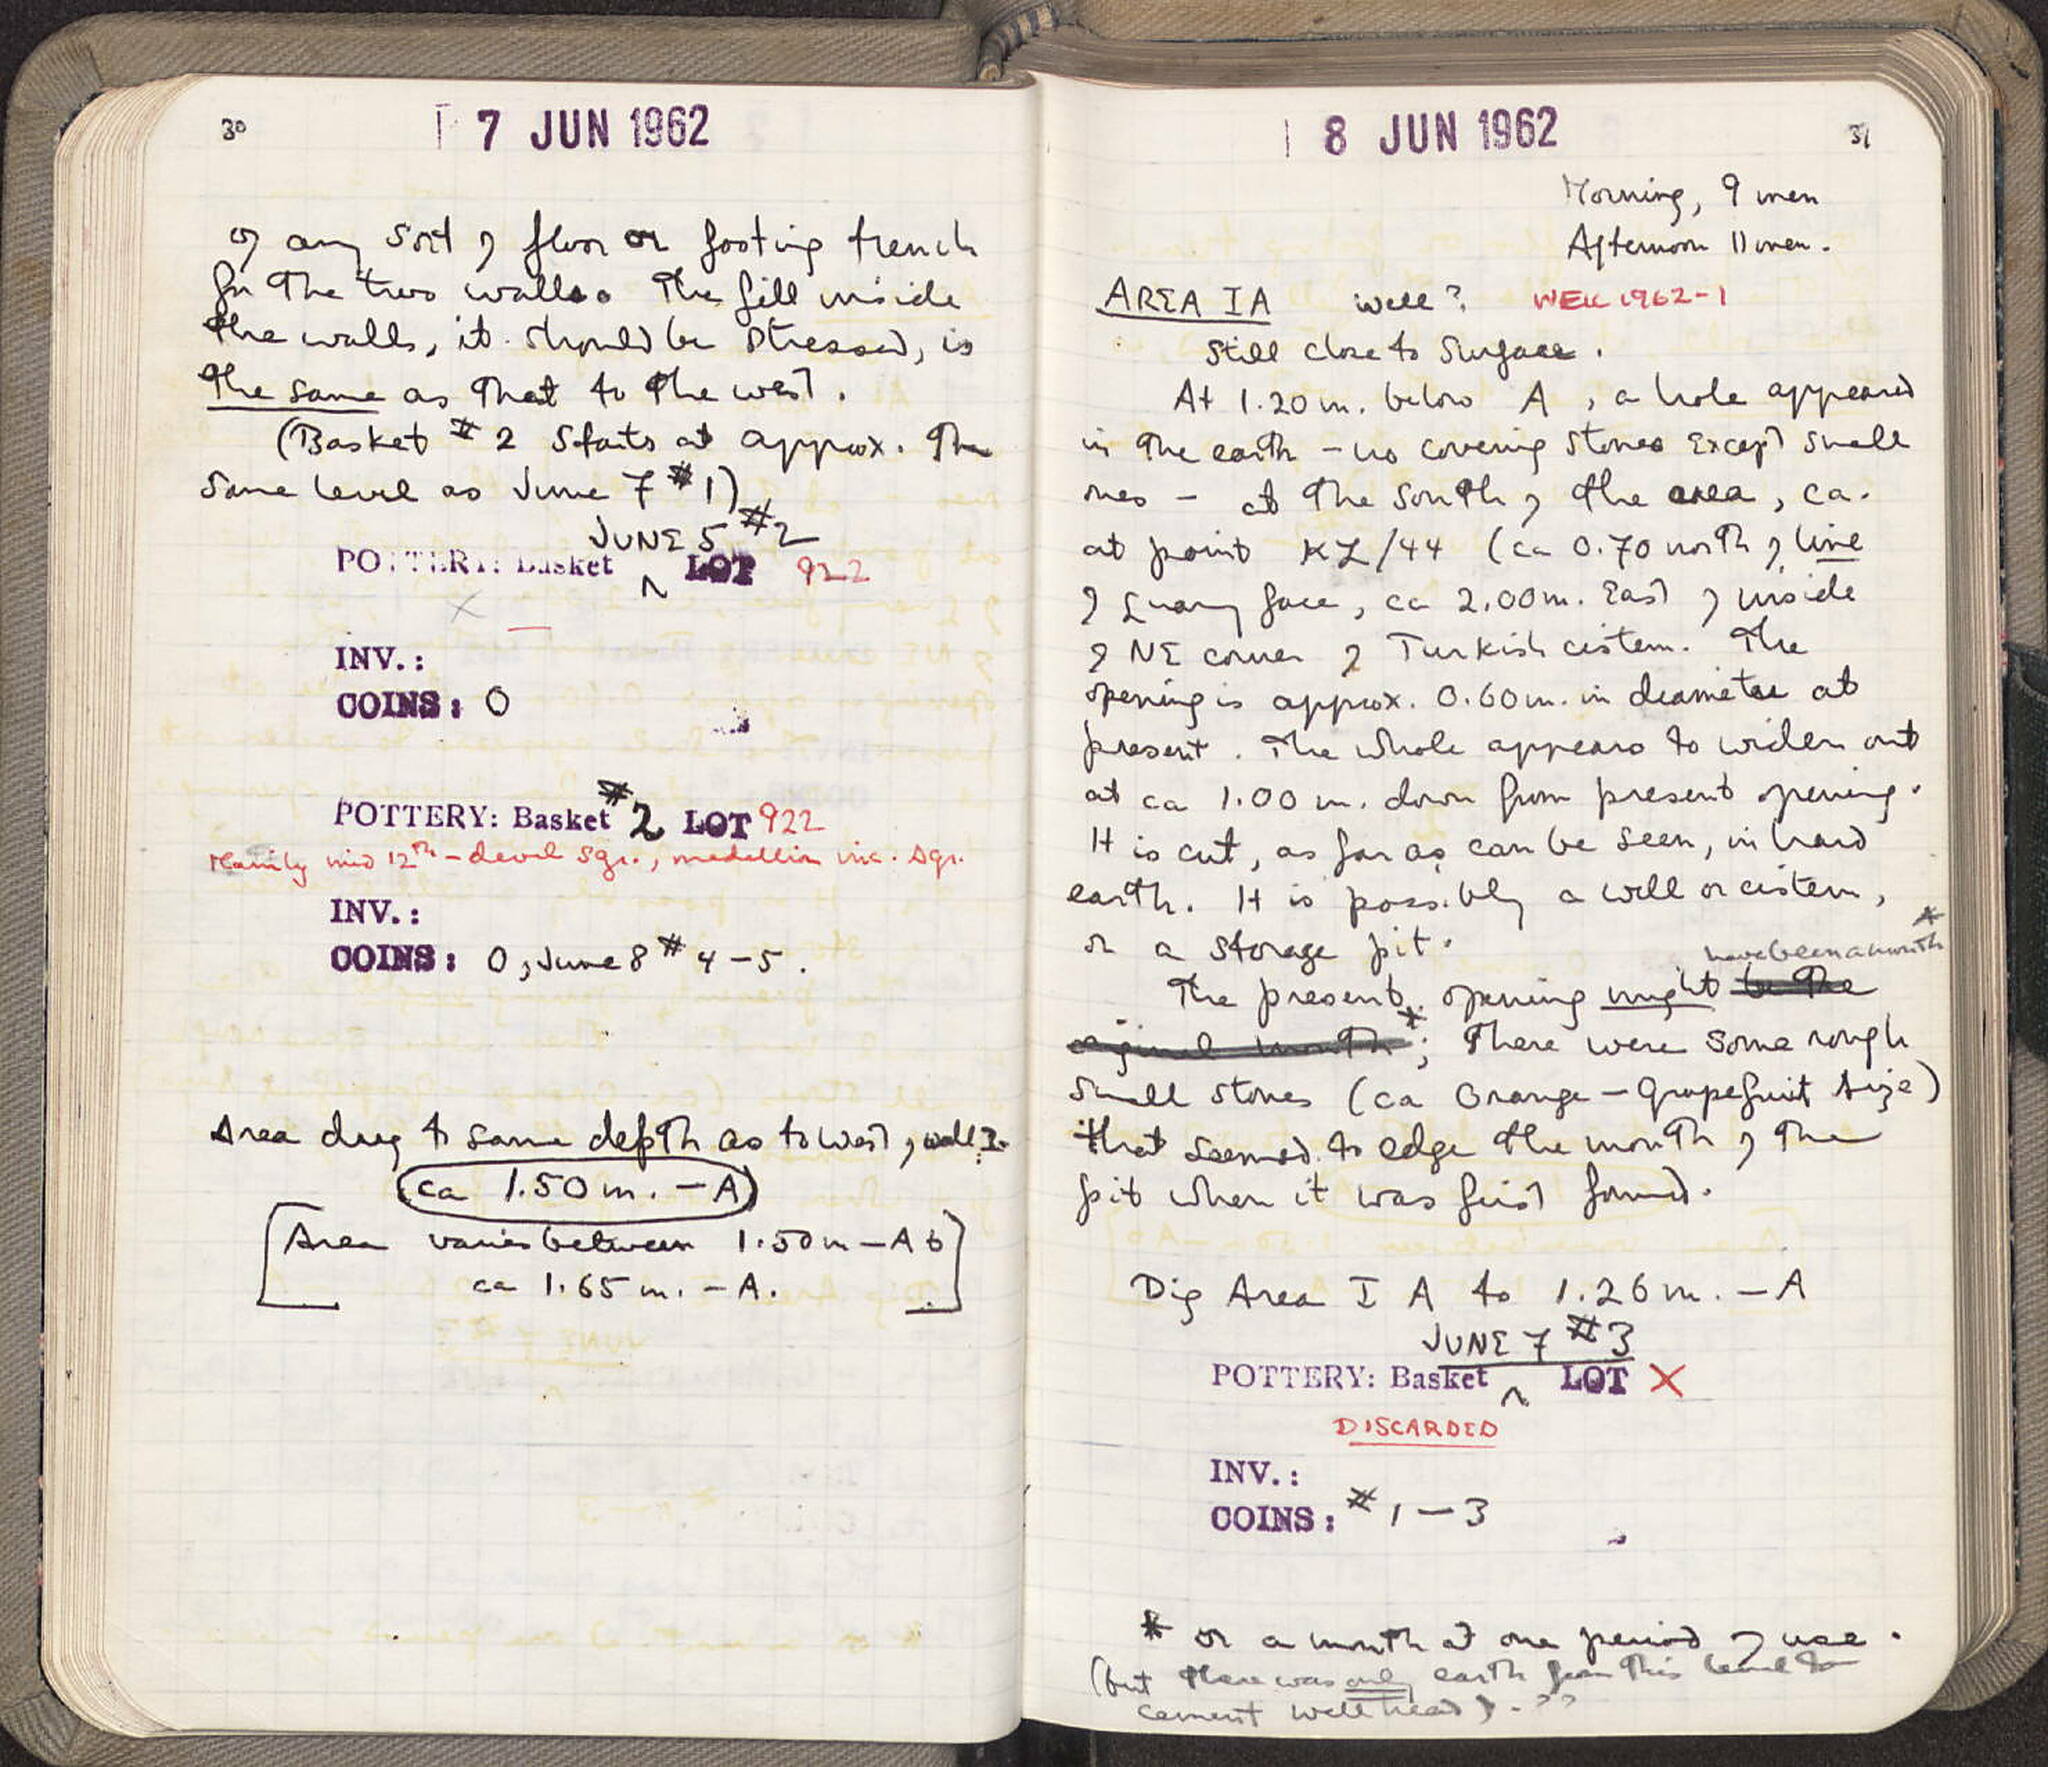 30
7 JUN 1962
of any sort of floor or footing trench
for the two walls. The fill inside
the walls, it should be stressed, is
the same as that to the west.
(Basket #2 starts at approx. the
same level as June 7 #1)
JUNE 5 #2
POTTERY: Basket ^ LOT 922
INV.:
COINS: 0
POTTERY: Basket #2 LOT 922
Mainly mid 12th - devel sgr., medallion inc. sgr.
INV.:
COINS: 0, June 8 #4-5.
Area dug to same depth as to west of wall 2.
ca 1.50 m. - A
[Area varies between 1.50 m - A to
ca 1.65 m. - A.]
8 JUN 1962
31
Morning, 9 men
Afternoon 11 men.
AREA IA well? WELL 1962-1
Still close to surface.
At 1.20 m. below A, a hole appeared
in the earth - no covering stones except small
ones - at the south of the area, ca.
at point KZ/44 (ca 0.70 north of line
of Quary face, ca 2.00 m. East of inside
of NE corner of Turkish cistern. The
opening is approx. 0.60 m. in diameter at
present. The whole appears to widen out
at ca 1.00 m. down from present opening.
It is cut, as far as can be seen, in hard
earth. It is possibly a well or cistern,
or a storage pit.
have been a mouth *
The present opening might be the
original mouth *; There were some rough
small stones (ca Orange - Grapefruit size)
that seemed to edge the mouth of the
pit when it was first found.
Dig Area I A to 1.26 m. - A
JUNE 7 #3
POTTERY: Basket ^ LOT X
DISCARDED
INV.:
COINS: #1-3
* or a mouth at one period of use.
(but there was only earth from this level to
cement well head). - ??